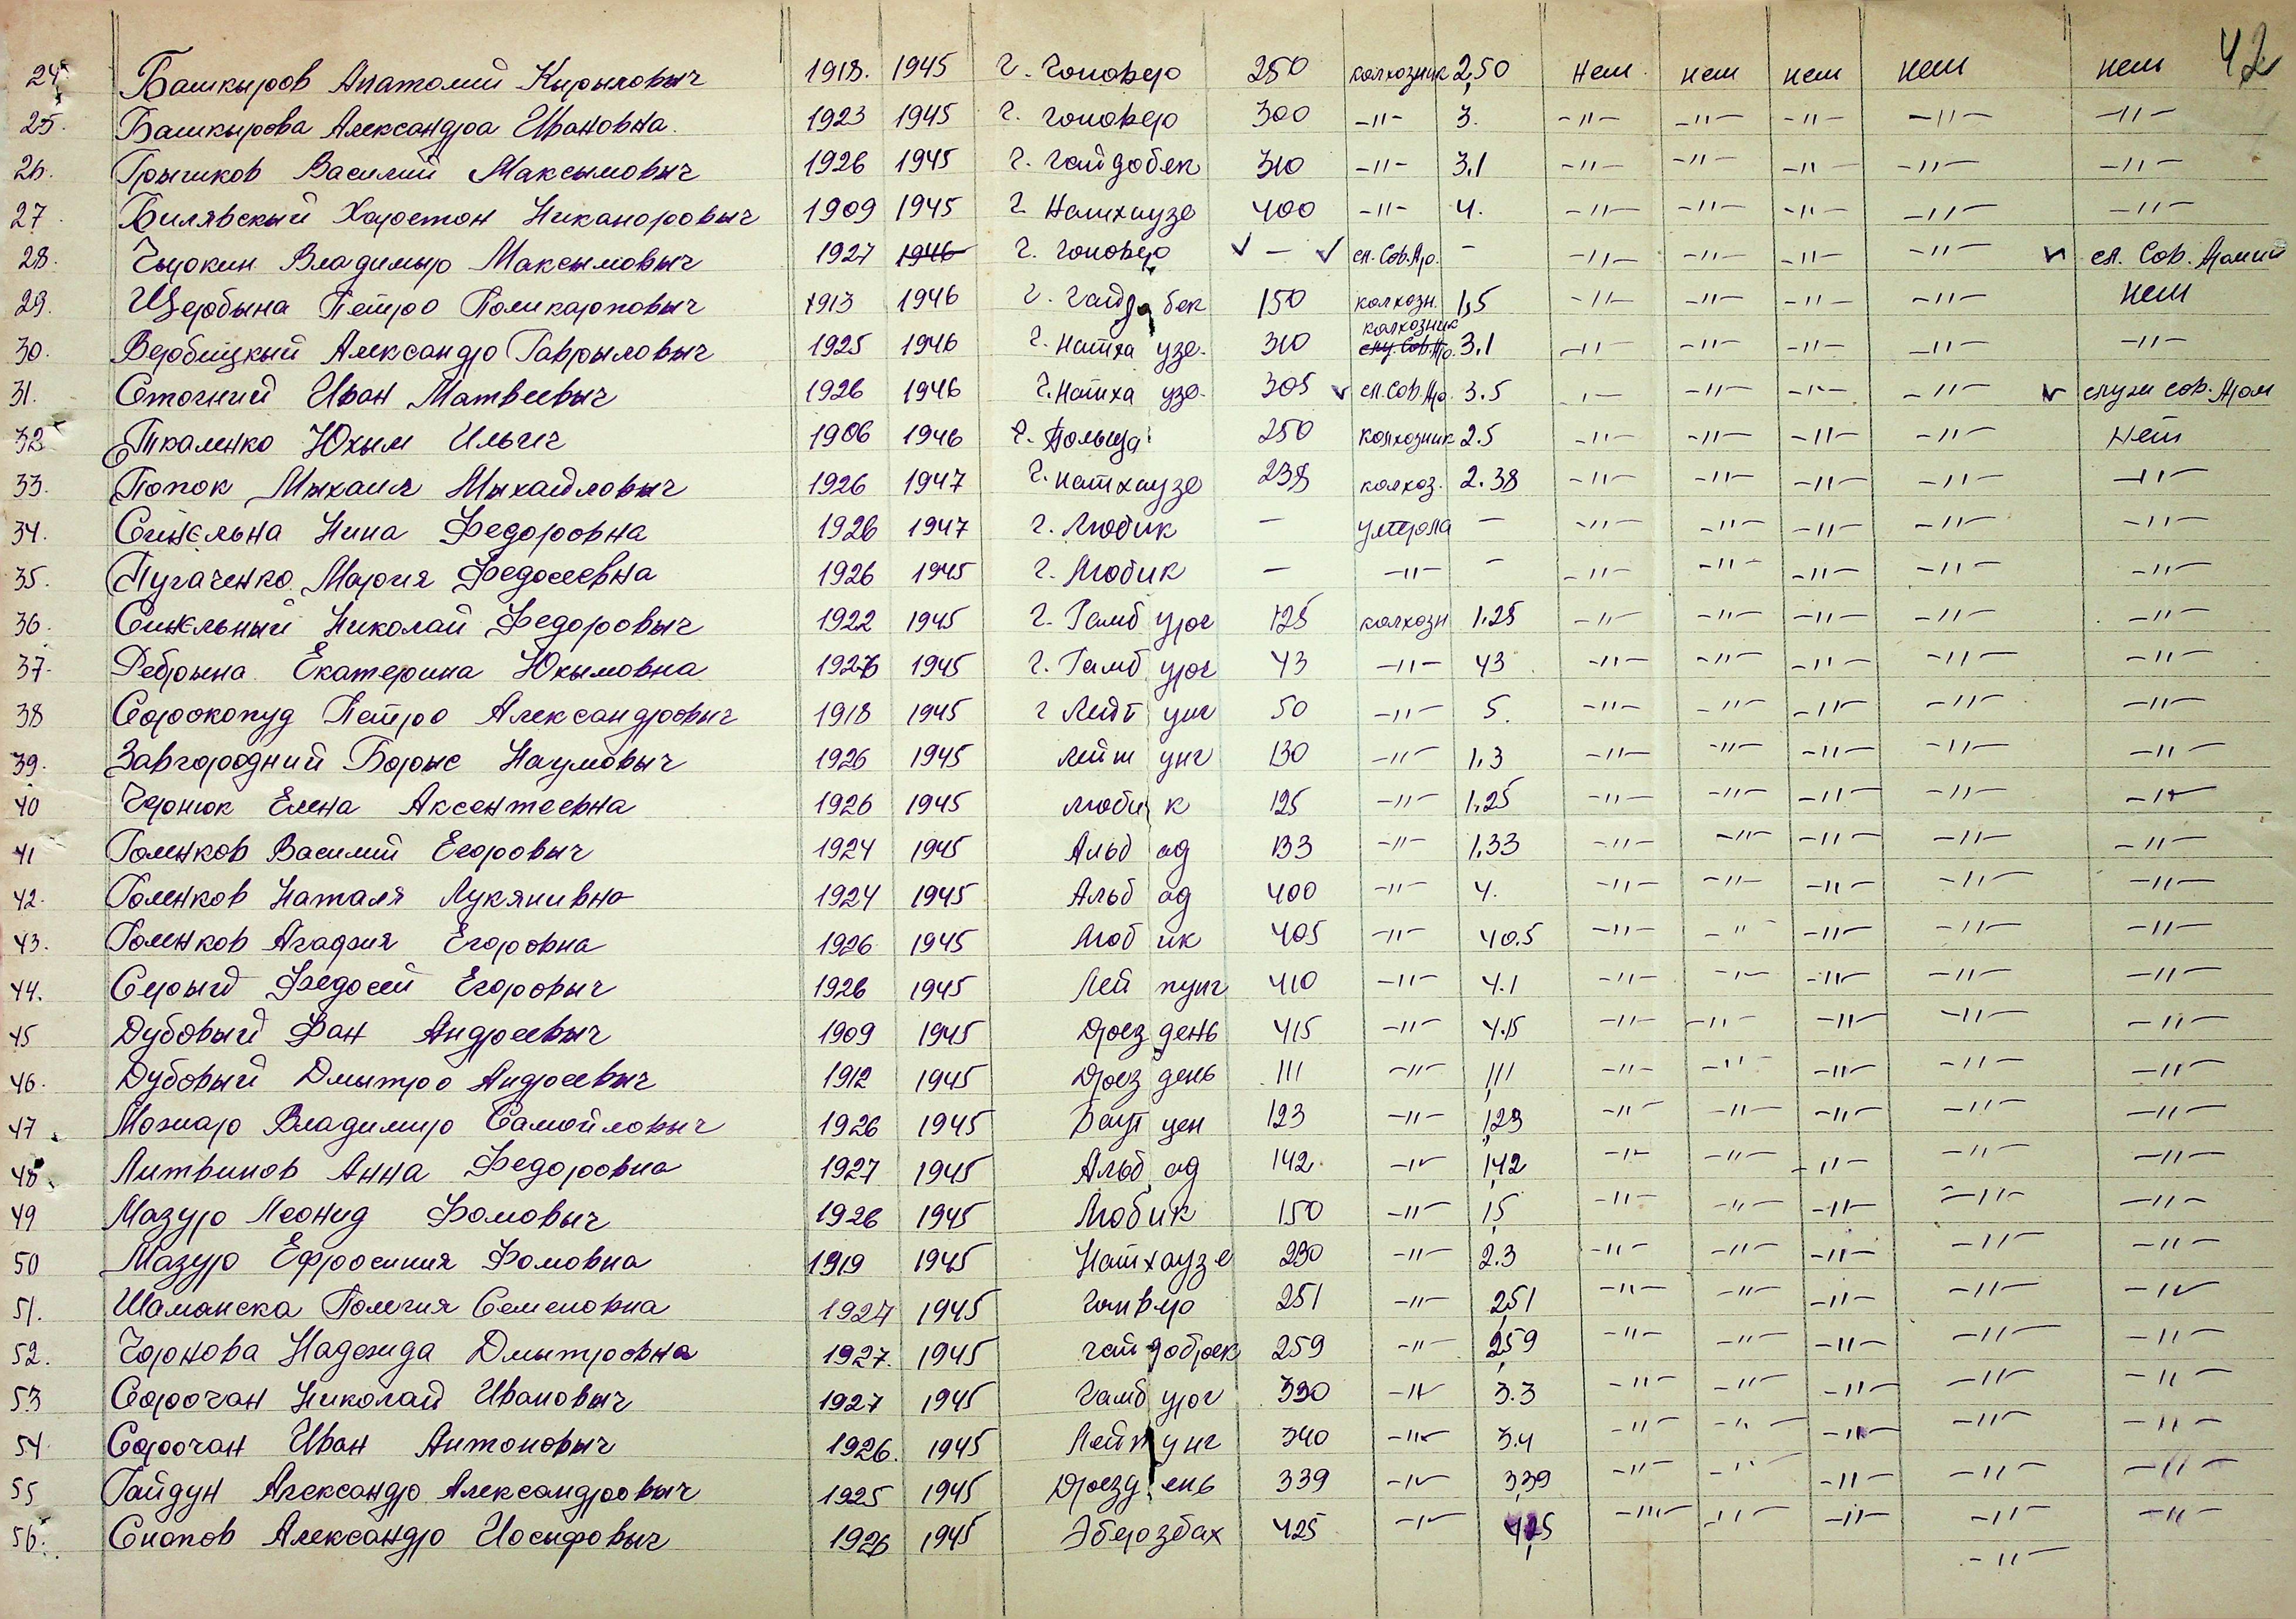 42
24 Башкыров Анатолий Кырылович 1918. 1945 г. Гоновер 250 колхозник 2,50 нет нет нет нет нет
25. Башкырова Александра Ивановна. 1923 1945 г. Гоновер 300 -"- 3. -"- -"- -"- -"- -"-
26. Грышков Василий Максымовыч 1926 1945 г. Гайдобек 310 -"- 3,1 -"- -"- -"- -"- -"-
27. Билявский Харетон Никаноровыч 1909 1945 г. Натхаузе 400 -"- 4. -"- -"- -"- -"- -"-
28. Чыркин Владимыр Максымовыч 1927 1946 г. Гоновер ✓ - ✓ сл. Сов. Ар. - -"- -"- -"- -"- ✓ сл. Сов. Армии
29. Щербына Петро Поликарповыч 1913 1946 г. Гайдабек 150 колхозн. 1,5 -"- -"- -"- -"- нет
30. Вербицкый Александр Гаврыловыч 1925 1946 г. Натхаузе. 310 колхозник 3.1 -"- -"- -"- -"- -"-
31. Стогний Иван Матвеевыч 1926 1946 г. Натхаузе. 305 ✓ сл. Сов. Ар. 3.5 -"- -"- -"- -"- ✓ служ Сов. Арм
32 Ткаленко Юхым Ильич 1906 1946 г. Польща 250 колхозник 2.5 -"- -"- -"- -"- нет
33. Попок Мыхаил Мыхайловыч 1926 1947 г. Натхаузе 238 колхоз. 2.38 -"- -"- -"- -"- -"-
34. Синельна Нина Федоровна 1926 1947 г. Любик - умерла - -"- -"- -"- -"- -"-
35. Пугаченко Мария Федосеевна 1926 1945 г. Любик - -"- - -"- -"- -"- -"- -"-
36. Синельный Николай Федоровыч 1922 1945 г. Гамбург 125 колхозн 1.25 -"- -"- -"- -"- -"-
37. Ребрына Екатерина Юхымовна 1926 1945 г. Гамбург 43 -"- 43 -"- -"- -"- -"- -"-
38 Сорокопуд Петро Александровыч 1918 1945 г Лейпунг 50 -"- 5. -"- -"- -"- -"- -"-
39. Завгородний Борыс Наумовыч 1926 1945 Лейпунг 130 -"- 1,3 -"- -"- -"- -"- -"-
40 Чернюк Елена Аксентеевна 1926 1945 Любик 125 -"- 1,25 -"- -"- -"- -"- -"-
41 Голенков Василий Егоровыч 1924 1945 Альбад 133 -"- 1,33 -"- -"- -"- -"- -"-
42. Голенков Наталя Лукянивна 1924 1945 Альбад 400 -"- 4. -"- -"- -"- -"- -"-
43. Голенков Агафия Егоровна 1926 1945 Любик 405 -"- 40.5 -"- -"- -"- -"- -"-
44. Серый Федосей Егоровыч 1926 1945 Лейпунг 410 -"- 4.1 -"- -"- -"- -"- -"-
45 Дубовый Фан Андреевыч 1909 1945 Дрездень 415 -"- 4.15 -"- -"- -"- -"- -"-
46. Дубовый Дмытро Андреевыч 1912 1945 Дрездень 111 -"- 1,11 -"- -"- -"- -"- -"-
47. Можар Владимир Самойловыч 1926 1945 Баутцен 123 -"- 1,23 -"- -"- -"- -"- -"-
48. Литвинов Анна Федоровна 1927 1945 Альбад 142 -"- 1,42 -"- -"- -"- -"- -"-
49 Мазур Леонид Фомовыч 1926 1945 Любик 150 -"- 1,5 -"- -"- -"- -"- -"-
50 Мазур Ефросиния Фомовна 1919 1945 Натхаузе 230 -"- 2.3 -"- -"- -"- -"- -"-
51. Шаманска Полегия Семеновна 1927 1945 Гонвер 251 -"- 2,51 -"- -"- -"- -"- -"-
52. Чорнова Надежда Дмытровна 1927. 1945 Гайдобрек 259 -"- 2,59 -"- -"- -"- -"- -"-
53 Сорочан Николай Ивановыч 1927 1945 Гамбург 330 -"- 3.3 -"- -"- -"- -"- -"-
54 Сорочан Иван Антоновыч 1926. 1945 Лейпунг 340 -"- 3.4 -"- -"- -"- -"- -"-
55 Гайдун Александр Александровыч 1925 1945 Дрездень 339 -"- 3,39 -"- -"- -"- -"- -"-
56. Снопов Александр Иосифовыч 1926 1945 Эберзбах 425 -"- 4,25 -"- -"- -"- -"- -"-
-"-